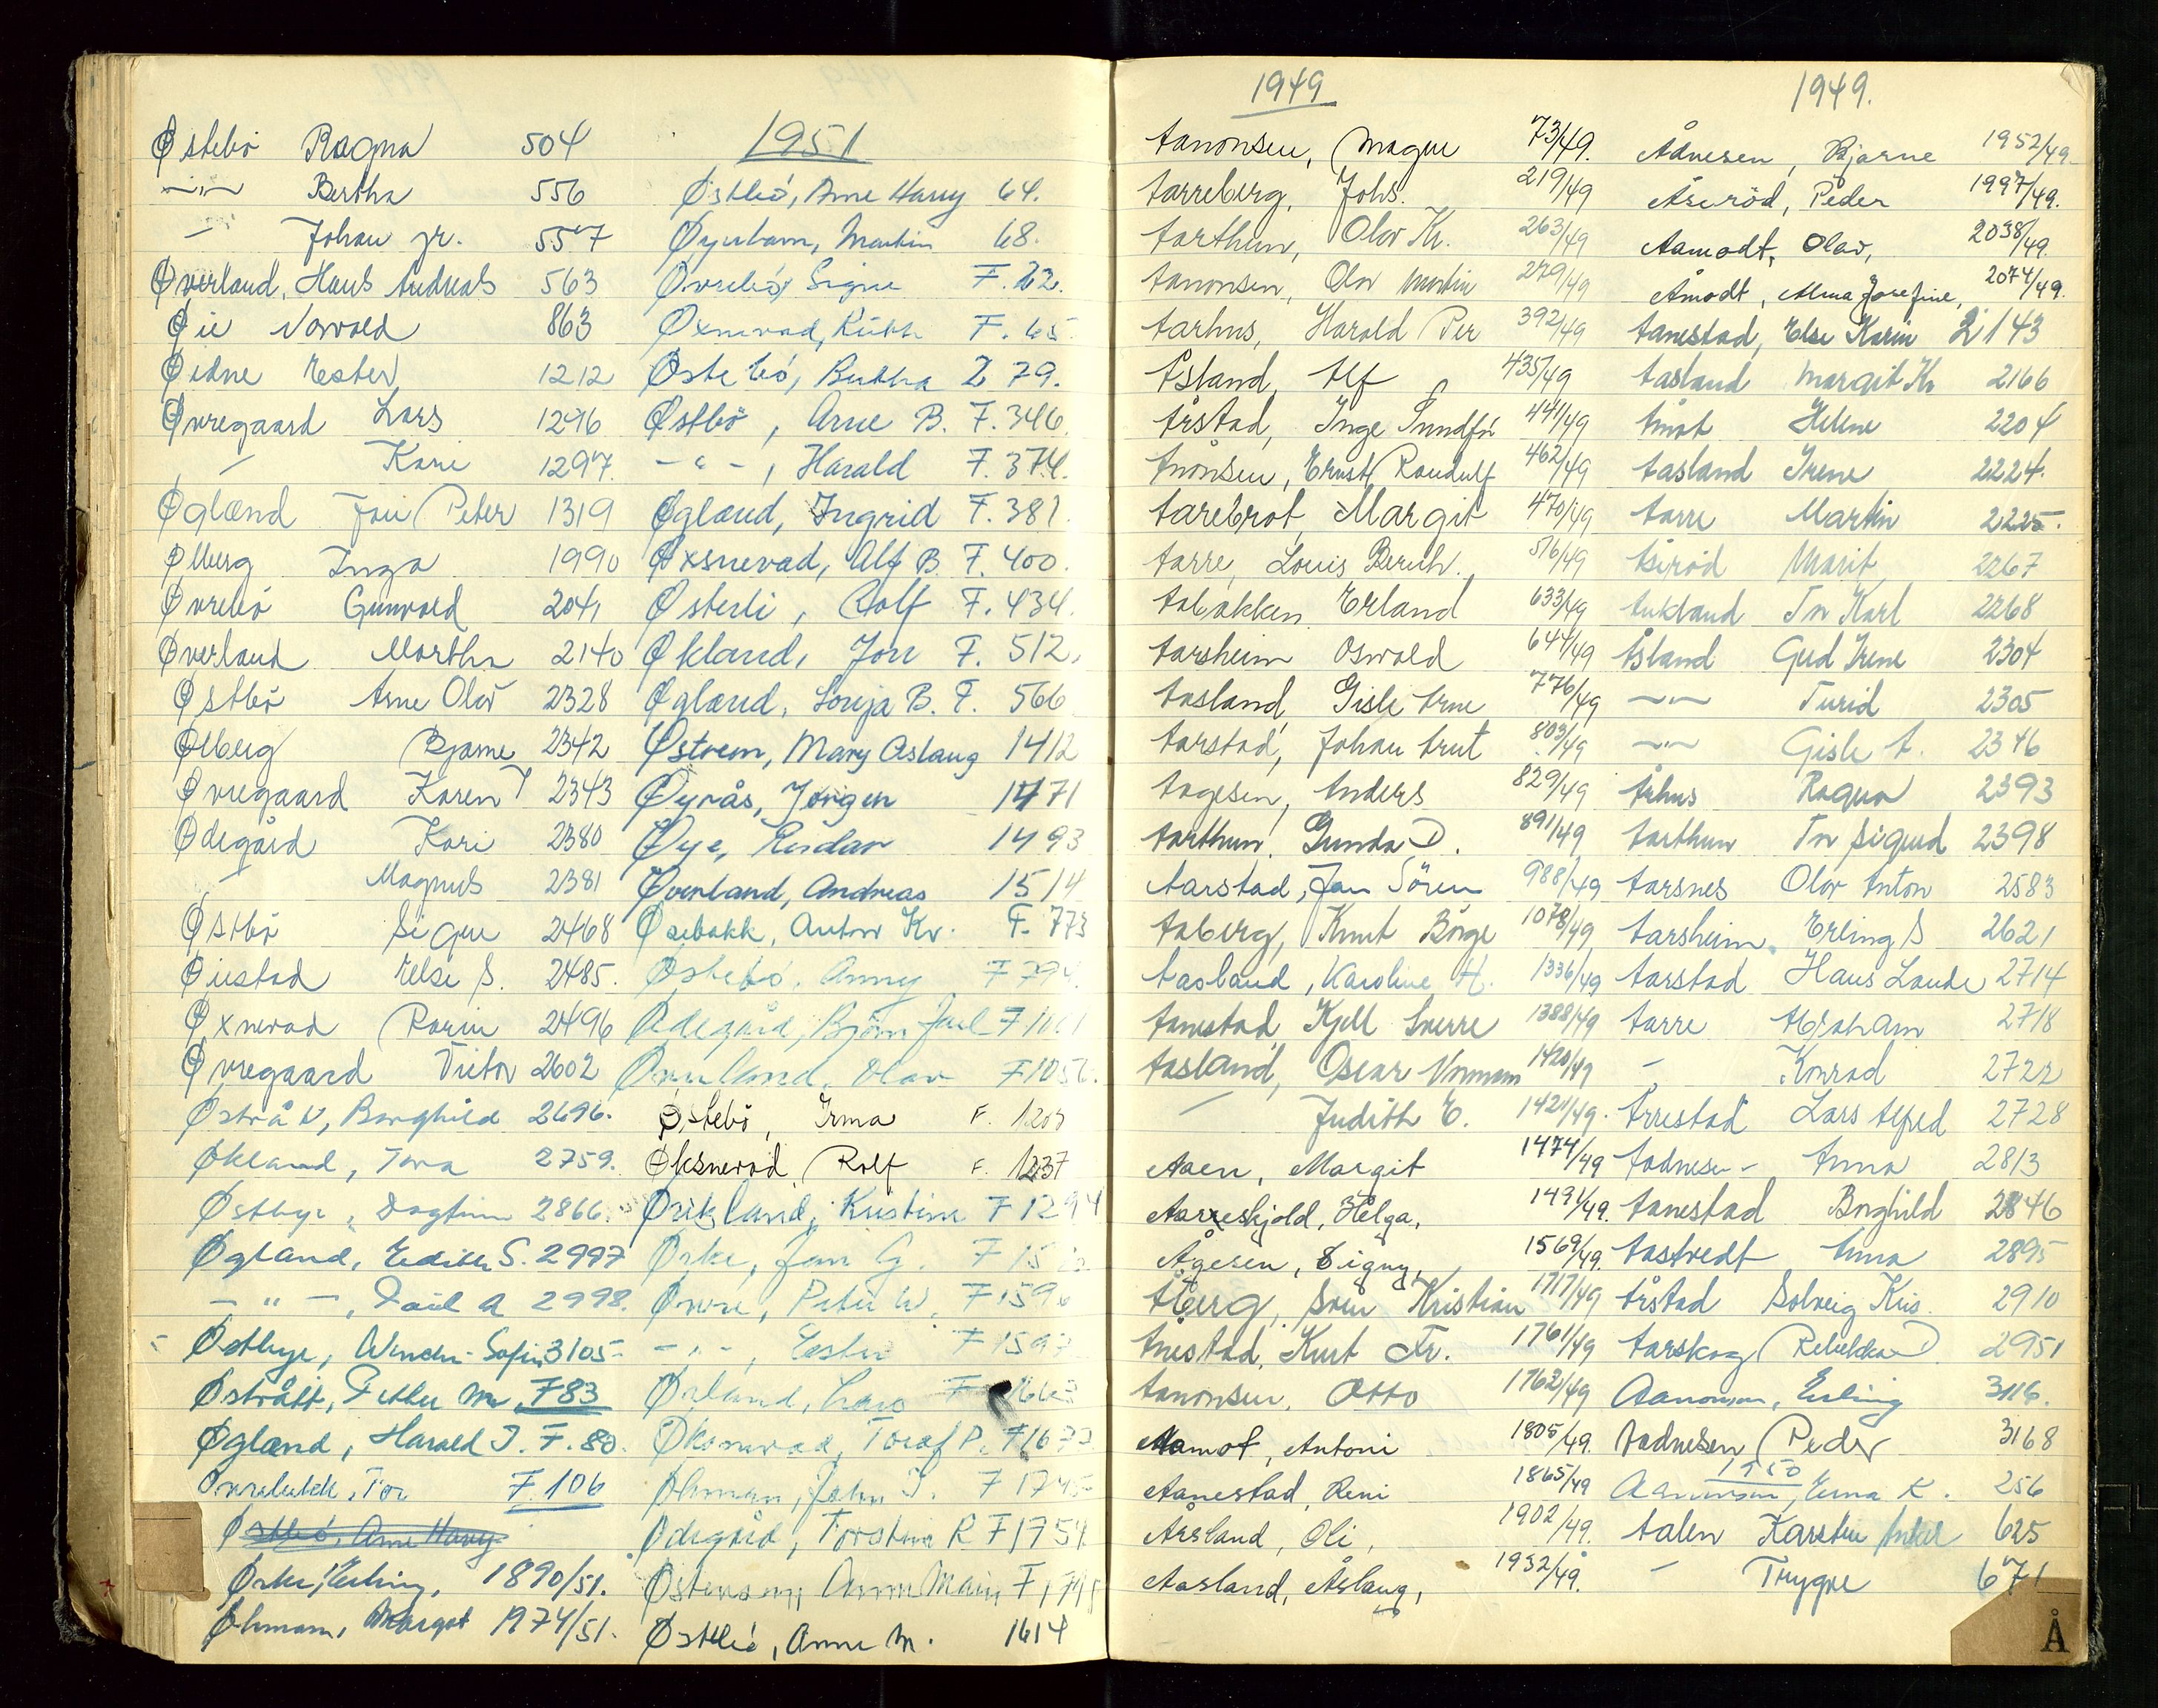 Østebö Ragna 504
—"— Bertha 556
— Johan jr. 557
Øverland, Hans Andreas 563
Øie Norvald 863
Ødne Ester 1212
Øvregaard Lars 1296
— Kari 1297
Øglænd Peter 1319
Ølberg Inga 1990
Øvrebö Gunvald 2041
Øverland Martha 2140
Østbö Arne Olav 2328
Ølberg Bjarne 2342
Øvregaard Karen T 2343
Ødegård Kari 2380
— Magnus 2381
Østbö Signe 2468
Øiestad Else S. 2485
Øxnevad Karin 2496
Øvregaard Victor 2602
Østråt, Borghild 2696.
Økland, Tora 2759.
Østhye, Dagfinn 2866.
Øgland, Edith S. 2997
— " —, Paul A 2998.
Østhye, Sofie 3105
Østrått, Petter M. F83
Øglænd, Harald J. F. 80.
Øvrebekk, Tor F. 106
Østbö, Arne Harry
Ørke, Erling, 1890/51.
Øhman, Margot 1974/51.
1951
Østbö, Arne Harry 64.
Øynbam, Martin 68.
Øvrebö, Signe F. 22.
Øxnevad, Ruth F. 65
Østebö, Bertha 279.
Østbö, Arne B. F. 346.
— " —, Harald F. 374.
Øgland, Ingrid F. 381.
Øxsnevad, Alf B. F. 400.
Østerli, Rolf F. 434.
Økland, Jon F. 512.
Øglænd, Sonja B. F. 566
Østrem, Mary Aslaug 1412
Øyrås, Jørgen 1471
Øye, Reidar 1493
Øverland, Andreas 1514
Øsebakk, Anton Kr. F. 773
Østebö, Anny F 794.
Ødegård, Björn Juel F
Øverland, Olav F 1056.
Østebö, Irma F.
Øksnevad, Rolf F. 1237
Kristine F 1294
Ørke, Jan G. F
Øvre, Peter W. F 159
— " —, Ester F 1597
Ørland, Lars F 1663
Øksnevad, Toralf P. F
Øhman, John J. F 1745
Ødegård, Torstein R F 1754
Østensen, Anne Marie F
Østbö, Anne M. 1614
1949
Aanonsen, Magne 73/49.
Aarreberg, Johs. 219/49
Aarthun, Olav Kr. 263/49
Aanonsen, Olav Martin 279/49
Aarhus, Harald Per 392/49
Åsland, Alf 435/49
Årstad, Inge Sundför 441/49
Ånonsen, Ernst Randulf 462/49
Aarebrot, Margit 470/49
Aarre, Louis Bernh. 516/49
Aabakken Erland 633/49
Aarsheim Oswald 644/49
Aasland, Gisle Arne 776/49
Aarstad, Johan Knut 803/49
Aagesen, Anders 829/49
Aarthun, Gunda D. 891/49
Aarstad, Jan Sören 988/49
Aaberg, Knut Börge 1078/49
Aasland, Karoline H. 1336/49
Aanestad, Kjell Sverre 1388/49
Aasland, Oscar Norman 1420/49
— Judith E. 1421/49.
Aaen, Margit 1474/49
Aarreskjold, Helga, 1491/49.
Ågesen, Signy, 1569/49.
Åberg, Svein Kristian 1717/49
Ånestad, Kurt Fr. 1761/49
Aanonsen, Otto 1762/49
Aamot, Antoni 1805/49.
Aanestad, Reni 1865/49
Årsland, Oli, 1902/49.
Aasland, Åslaug, 1932/49.
1949.
Ådnesen, Bjarne 1952/49
Åseröd, Peder 1997/49.
Aamodt, Olav, 2038/49.
Åmodt, Alma Josefine, 2074/49.
Aanestad, Else Karin 2143
Aasland Margit Kr 2166
Åmot Helene 2204
Aasland Irene 2224.
Aarre Martin 2225.
Åseröd Marit 2267
Aukland Tr Karl 2268
Åsland Gud Irene 2304
—"— Turid 2305
—"— Gisle A. 2346
Århus Ragna 2393
Aarthun Tr Sigurd 2398
Aarsnes Olav Anton 2583
Aarsheim Erling S 2621
Aarstad Hans Laude 2714
Aarre Abraham 2718
— Konrad 2722
Årrestad Lars Alfred 2728
Aadnesen Anna 2813
Aanestad Borghild 2846
Aastvedt Anna 2895
Årstad Solveig Kris. 2910
Aarskog Rebekka D. 2951
Aanonsen, Erling 3116.
Aadnesen Peder 3168
1950
Aanonsen, Erna K. 256
Aalen Karsten Mikal 625
— Trygve 671
Å